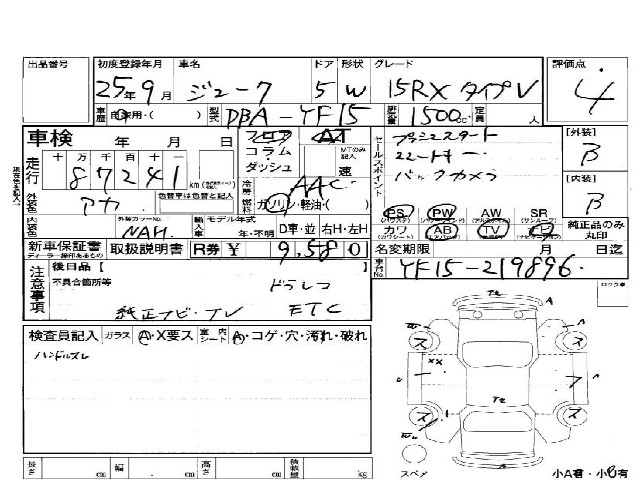 出品番号 初度登録年月 車名 ドア 形状 グレード 評価点
25年9月 ジューク 5 W 15RX タイプV 4
車歴 自家用・( ) 型式 DBA-YF15 排気量 1500cc 定員 人
車検 年 月 日 フロア コラム・ダッシュ AT MTのみ記入 速 セールスポイント プッシュスタート [外装] B
走行 十 万 千 百 十 一 87241 km 冷房 AAC インテリキー
色替車は色替と記入 燃料 ガソリン・軽油・( ) バックカメラ [内装] B
外装色 アカ 外装カラーNo. NAH 輸入車 モデル年式 年・不明 D車・並 右H・左H
PS PW AW SR
カワ AB TV 純正品のみ丸印
新車保証書 取扱説明書 R券 ¥ 9,580 名変期限 月 日迄
ディーラー捺印あるもの
車台No. YF15-219896
注意事項 後日品[ ] ロック車
不具合箇所等 ドラレコ
純正ナビ・TV ETC
検査員記入 ガラス A・X要ス 室内シート A・コゲ・穴・汚れ・破れ
ハンドルスレ
ス ス
XX
ス ス
スペア 小A有・小B有
長さ cm 幅 cm 高さ cm 積載量 kg